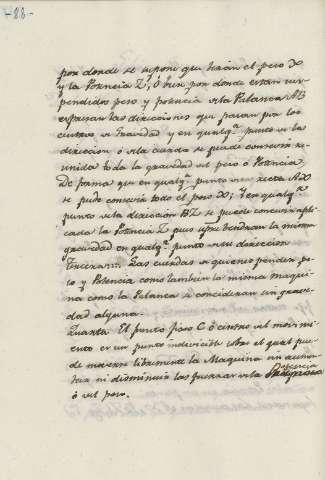 -88-
por donde se supone que tiran el peso X
y la Potencia Z; ó bien por donde estan sus-
pendidos peso y potencia de la Palanca AB
expresan las direcciones que pasan por los
centros de gravedad y en qualqr. punto de la
direccion ó de la cuerda se puede concevir re-
unida toda la gravedad del peso ó Potencia
De forma que en qualqr. punto de la recta AX
se pude concevir todo el peso X; y en qualqr.
punto de la direccion BZ se puede concevir apli-
cada la Potencia Z pues spre. tendran la misma
gravedad en qualqr. punto de su direccion
Tercera... Las cuerdas de quienes penden pe-
so y Potencia como tambien la misma maqui-
na como la Palanca se consideran sin grave-
dad alguna.
Quarta El punto fixo C ó centro del movimi-
ento es un punto indivisible sobre el qual pue-
de moverse libremente la Maquina sin aumen-
tar ni disminuir las fuerzas de la Potencia
ó del peso.